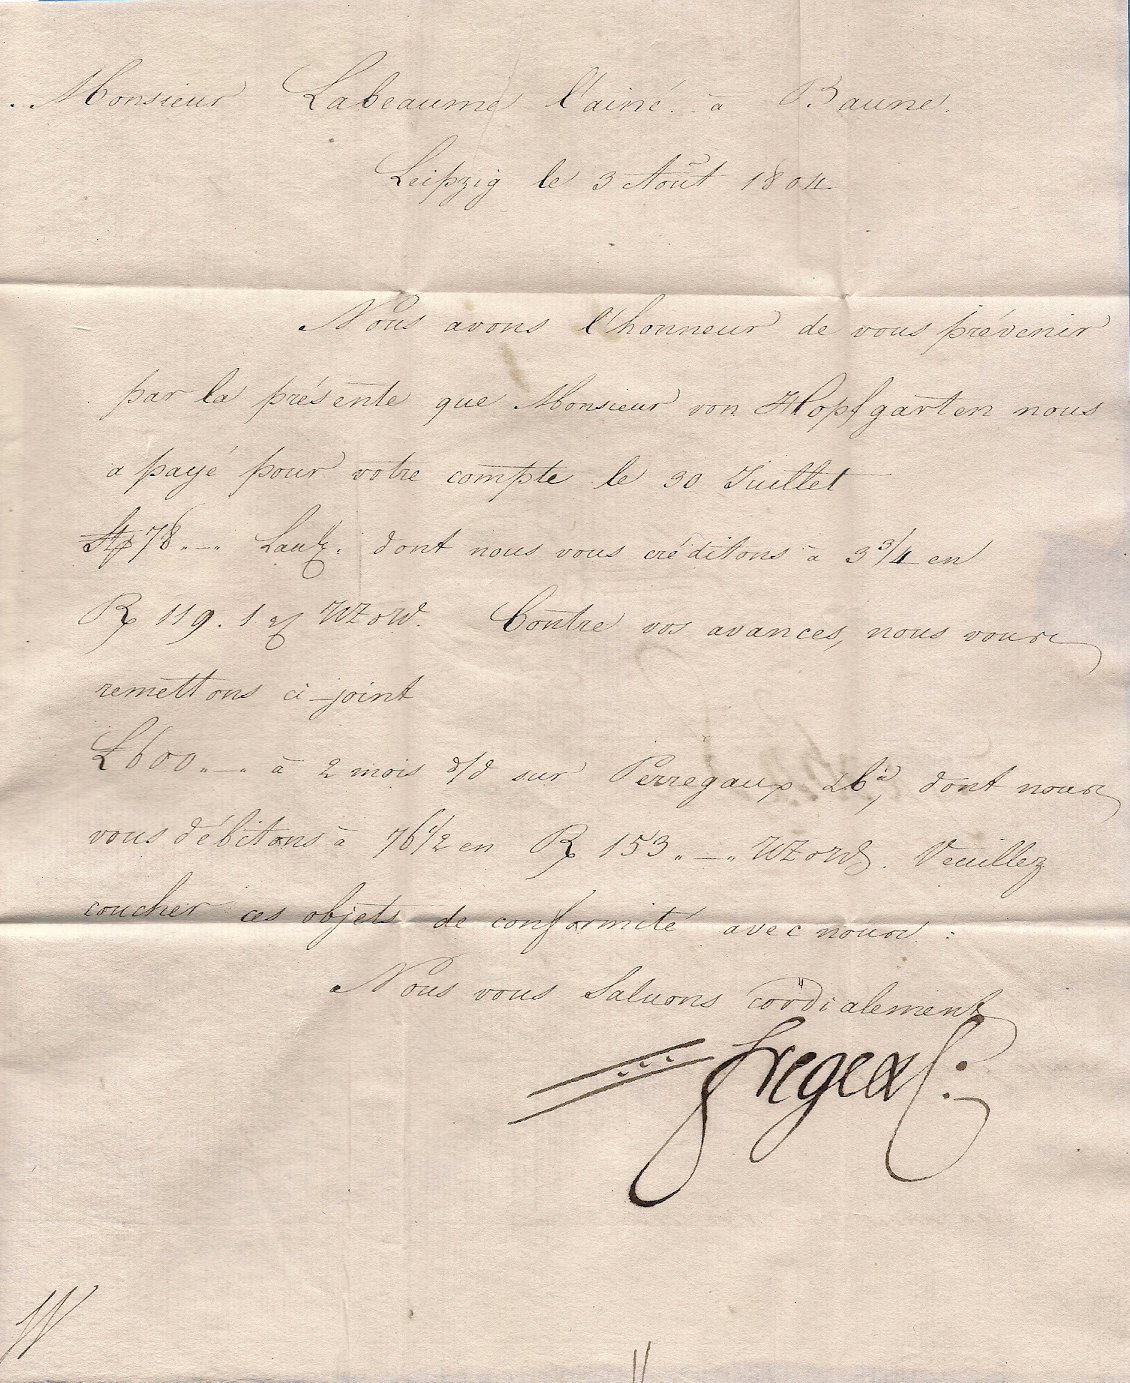 Monsieur Labeaume l'ainé à Baune.
Leipzig le 3 Août 1804
Nous avons l'honneur de vous prévenir
par la présente que Monsieur von Hopfgarten nous
a payé pour votre compte le 30 Juillet
78.—. dont nous vous créditons à 3 3/4 en
R 119. 1 WZ Contre vos avances, nous vous
remettons ci-joint
₤600.—. à 2 mois d/d sur Perregaux dont nous
vous débitons à 76 1/2 en R 153.—. WZ Veuillez
coucher ces objets de conformité avec nous :
Nous vous Saluons cordialement
Frege & C: